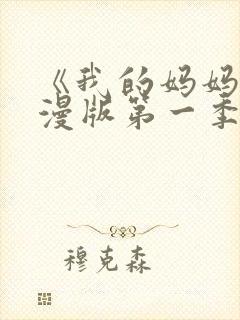 《我的妈妈
漫版第一季
穆克森